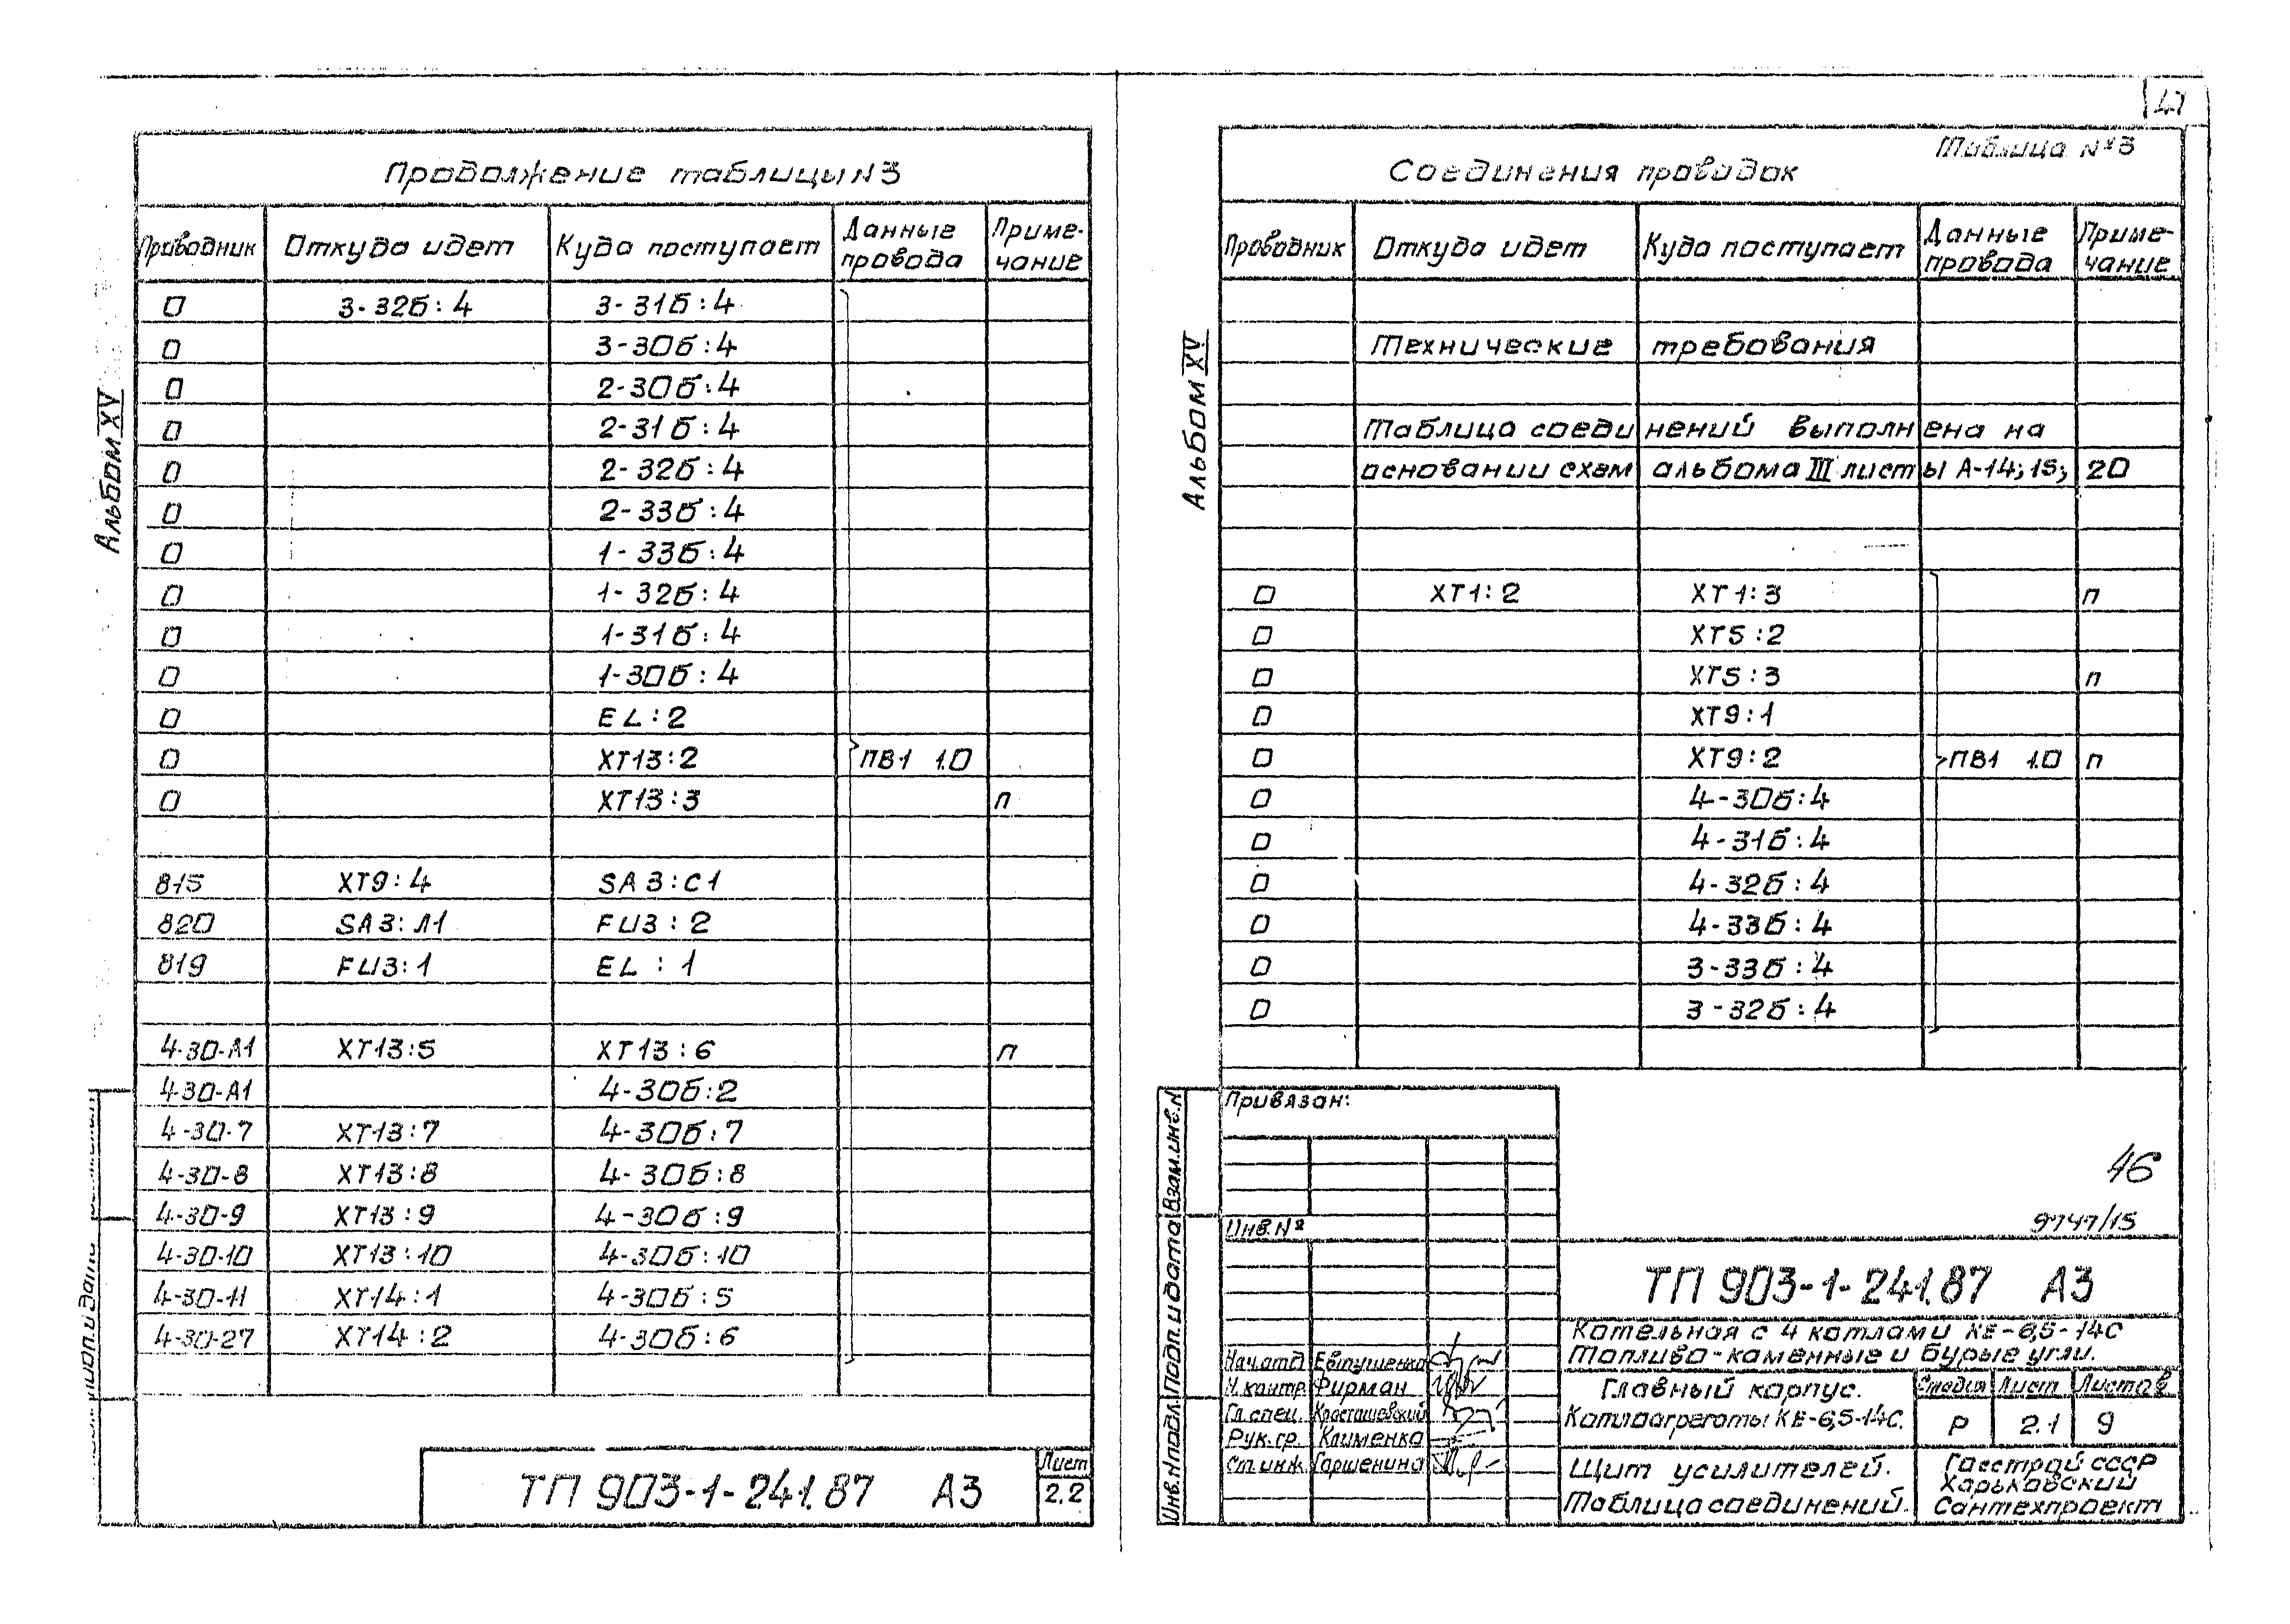 47
Альбом XV
Продолжение таблицы N3
Проводник Откуда идет Куда поступает Данные провода Примечание
0 3-32б:4 3-31б:4
0 3-30б:4
0 2-30б:4
0 2-31б:4
0 2-32б:4
0 2-33б:4
0 1-33б:4
0 1-32б:4
0 1-31б:4
0 1-30б:4
0 EL:2
0 XT13:2 ПВ1 1.0
0 XT13:3 п
815 XT9:4 SA3:C1
820 SA3:Л1 FU3:2
819 FU3:1 EL:1
4-30-А1 XT13:5 XT13:6 п
4-30-А1 4-30б:2
4-30-7 XT13:7 4-30б:7
4-30-8 XT13:8 4-30б:8
4-30-9 XT13:9 4-30б:9
4-30-10 XT13:10 4-30б:10
4-30-11 XT14:1 4-30б:5
4-30-27 XT14:2 4-30б:6
ТП 903-1-241.87 А3
Лист
2.2
Альбом XV
Таблица №3
Соединения проводок
Проводник Откуда идет Куда поступает Данные провода Примечание
Технические требования
Таблица соединений выполнена на
основании схем альбома III листы А-14; 15; 20
0 XT1:2 XT1:3 п
0 XT5:2
0 XT5:3 п
0 XT9:1
0 XT9:2 ПВ1 1.0 п
0 4-30б:4
0 4-31б:4
0 4-32б:4
0 4-33б:4
0 3-33б:4
0 3-32б:4
Привязан:
Инв.№
46
9747/15
ТП 903-1-241.87 А3
Котельная с 4 котлами КЕ-6,5-14С
Топливо-каменные и бурые угли.
Нач.отд Евтушенко
Н.контр. Фирман
Гл.спец. Красташевский
Рук.гр. Клименко
Ст.инж. Гаршенина
Главный корпус.
Котлоагрегаты КЕ-6,5-14С.
Стадия Лист Листов
Р 2.1 9
Щит усилителей.
Таблица соединений.
Госстрой СССР
Харьковский
Сантехпроект
Инв.N подл. Подп. и дата Взам.инв.N